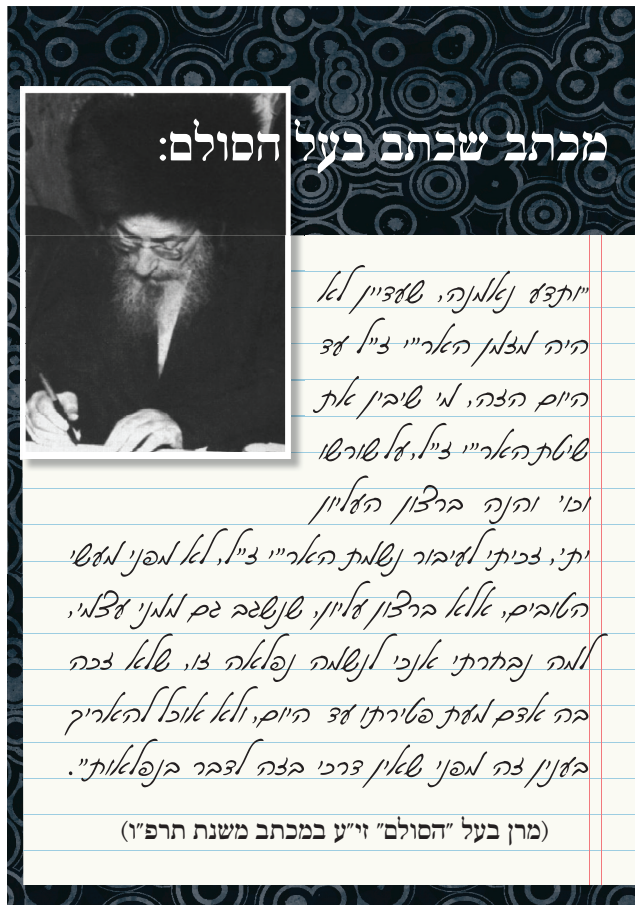 מכתב שכתב בעל הסולם:
"ותדע נאמנה, שעדיין לא
היה מזמן האר"י ז"ל עד
היום הזה, מי שיבין את
שיטת האר"י ז"ל, על שורשו
וכו' והנה ברצון העליון
ית', זכיתי לעיבור נשמת האר"י ז"ל, לא מפני מעשי
הטובים, אלא ברצון עליון, שנשגב גם ממני עצמי,
למה נבחרתי אנכי לנשמה נפלאה זו, שלא זכה
בה אדם מעת פטירתו עד היום, ולא אוכל להאריך
בענין זה מפני שאין דרכי בזה לדבר בנפלאות".
(מרן בעל "הסולם" זי"ע במכתב משנת תרפ"ו)